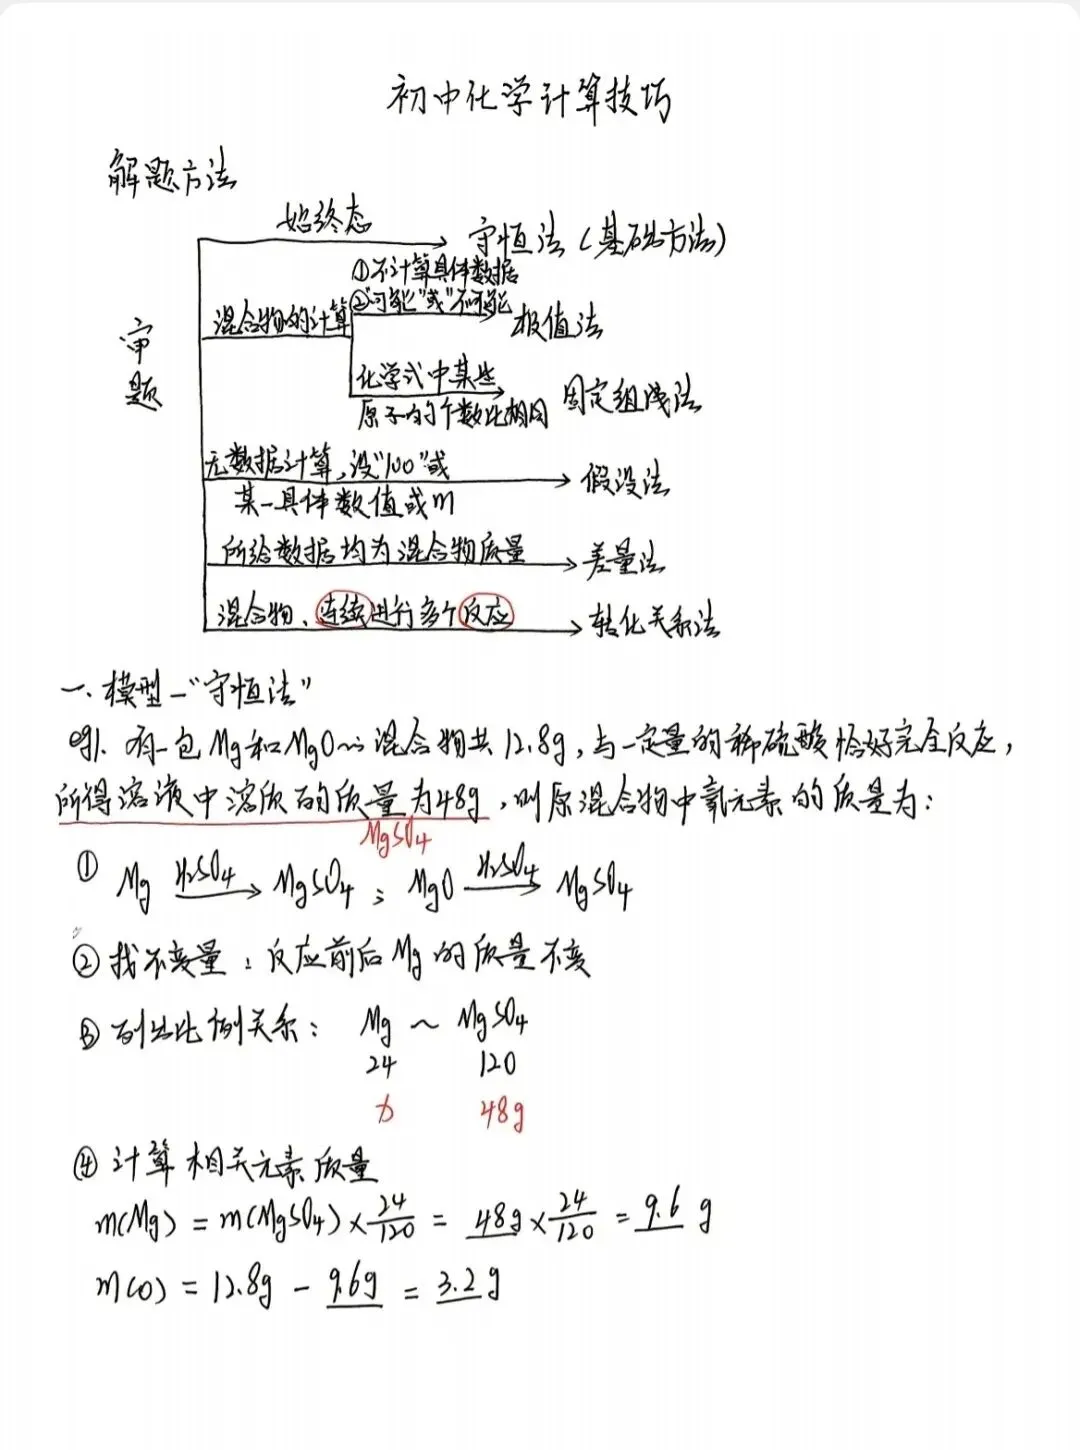 初中化学计算技巧
解题方法
审题
始终态
守恒法(基础方法)
混合物的计算
①不计算具体数据
②"可能"或"不可能
极值法
化学式中某些
原子的个数比相同
固定组成法
无数据计算,设"100"或
某一具体数值或m
假设法
所给数据均为混合物质量
差量法
混合物、连续进行多个反应
转化关系法
一.模型-"守恒法"
eg1.有一包Mg和MgO的混合物共12.8g,与一定量的稀硫酸恰好完全反应,
所得溶液中溶质的质量为48g,则原混合物中氧元素的质量为:
MgSO4
① Mg H2SO4→ MgSO4; MgO H2SO4→ MgSO4
②找不变量:反应前后Mg的质量不变
③列出比例关系: Mg ~ MgSO4
24 120
x 48g
④计算相关元素质量
m(Mg) = m(MgSO4)×24/120 = 48g×24/120 = 9.6 g
m(O) = 12.8g - 9.6g = 3.2 g